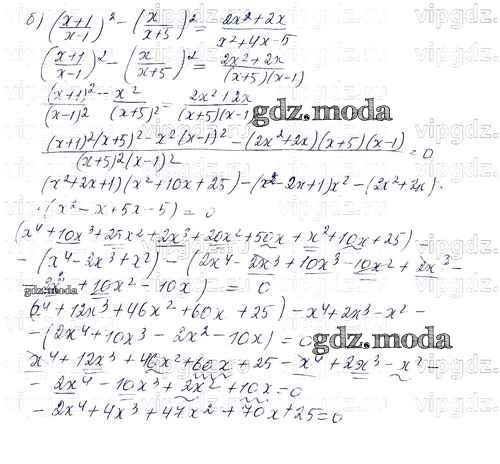 б) (x+1/x-1)² - (x/x+5)² = 2x²+2x/x²+4x-5
(x+1/x-1)² - (x/x+5)² = 2x²+2x/(x+5)(x-1)
(x+1)²/(x-1)² - x²/(x+5)² = 2x²+2x/(x+5)(x-1) gdz.moda
(x+1)²(x+5)² - x²(x-1)² - (2x²+2x)(x+5)(x-1)/(x+5)²(x-1)² = 0
(x²+2x+1)(x²+10x+25) - (x²-2x+1)x² - (2x²+2x)·
·(x²-x+5x-5) = 0
(x⁴+10x³+25x²+2x³+20x²+50x+x²+10x+25) -
- (x⁴-2x³+x²) - (2x⁴-2x³+10x³-10x²+2x³-
gdz.moda 2x²+10x²-10x) = 0
(x⁴+12x³+46x²+60x+25) - x⁴+2x³-x² -
- (2x⁴+10x³-2x²-10x) = 0 gdz.moda
x⁴+12x³+46x²+60x+25-x⁴+2x³-x²-
- 2x⁴-10x³+2x²+10x=0
- 2x⁴+4x³+47x²+70x+25=0
vipgdz